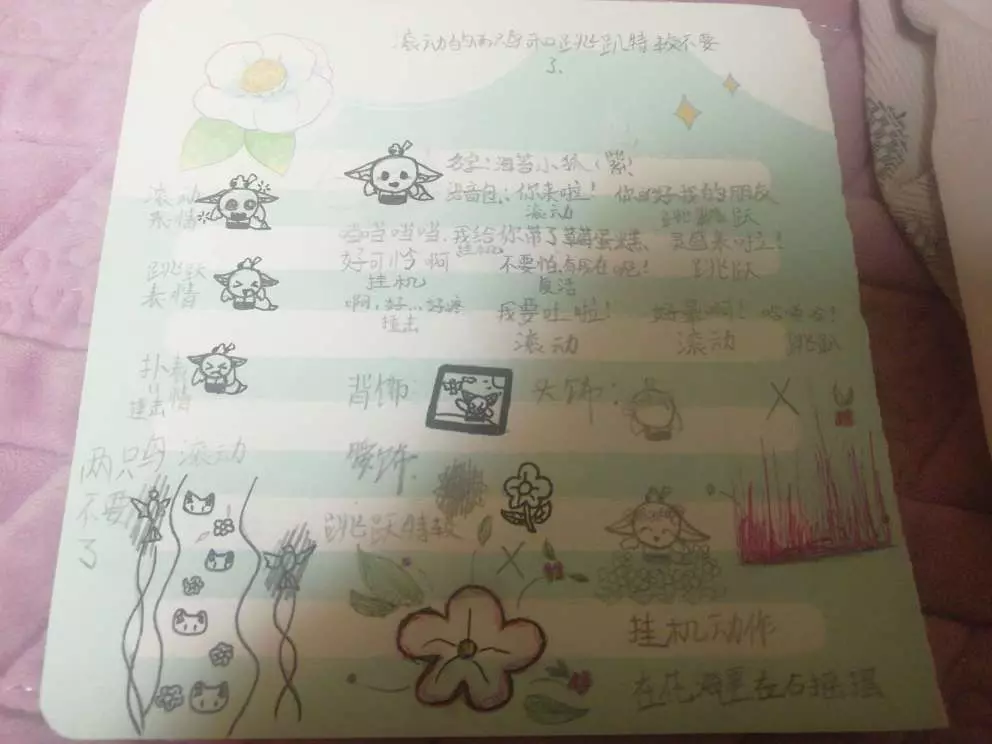 滚动的两只鸟和跳跃特效不要
了.
名字:海苔小狐(紫)
滚动
表情
语音包:你来啦! 你好我的朋友
滚动 跳跃
噹噹噹噹,我给你带了草莓蛋糕、灵感来啦!
挂机
跳跃
表情
好可怜啊 不要怕,有我在呢! 跳跃
挂机 复活
啊,好…好疼 我要吐啦! 好晕啊!
撞击 滚动 滚动 跳跃
扑
撞击
表情
背饰 头饰:
两只鸟
不要
了
滚动
跳跃特效
挂机动作
在花海里左右摇摆